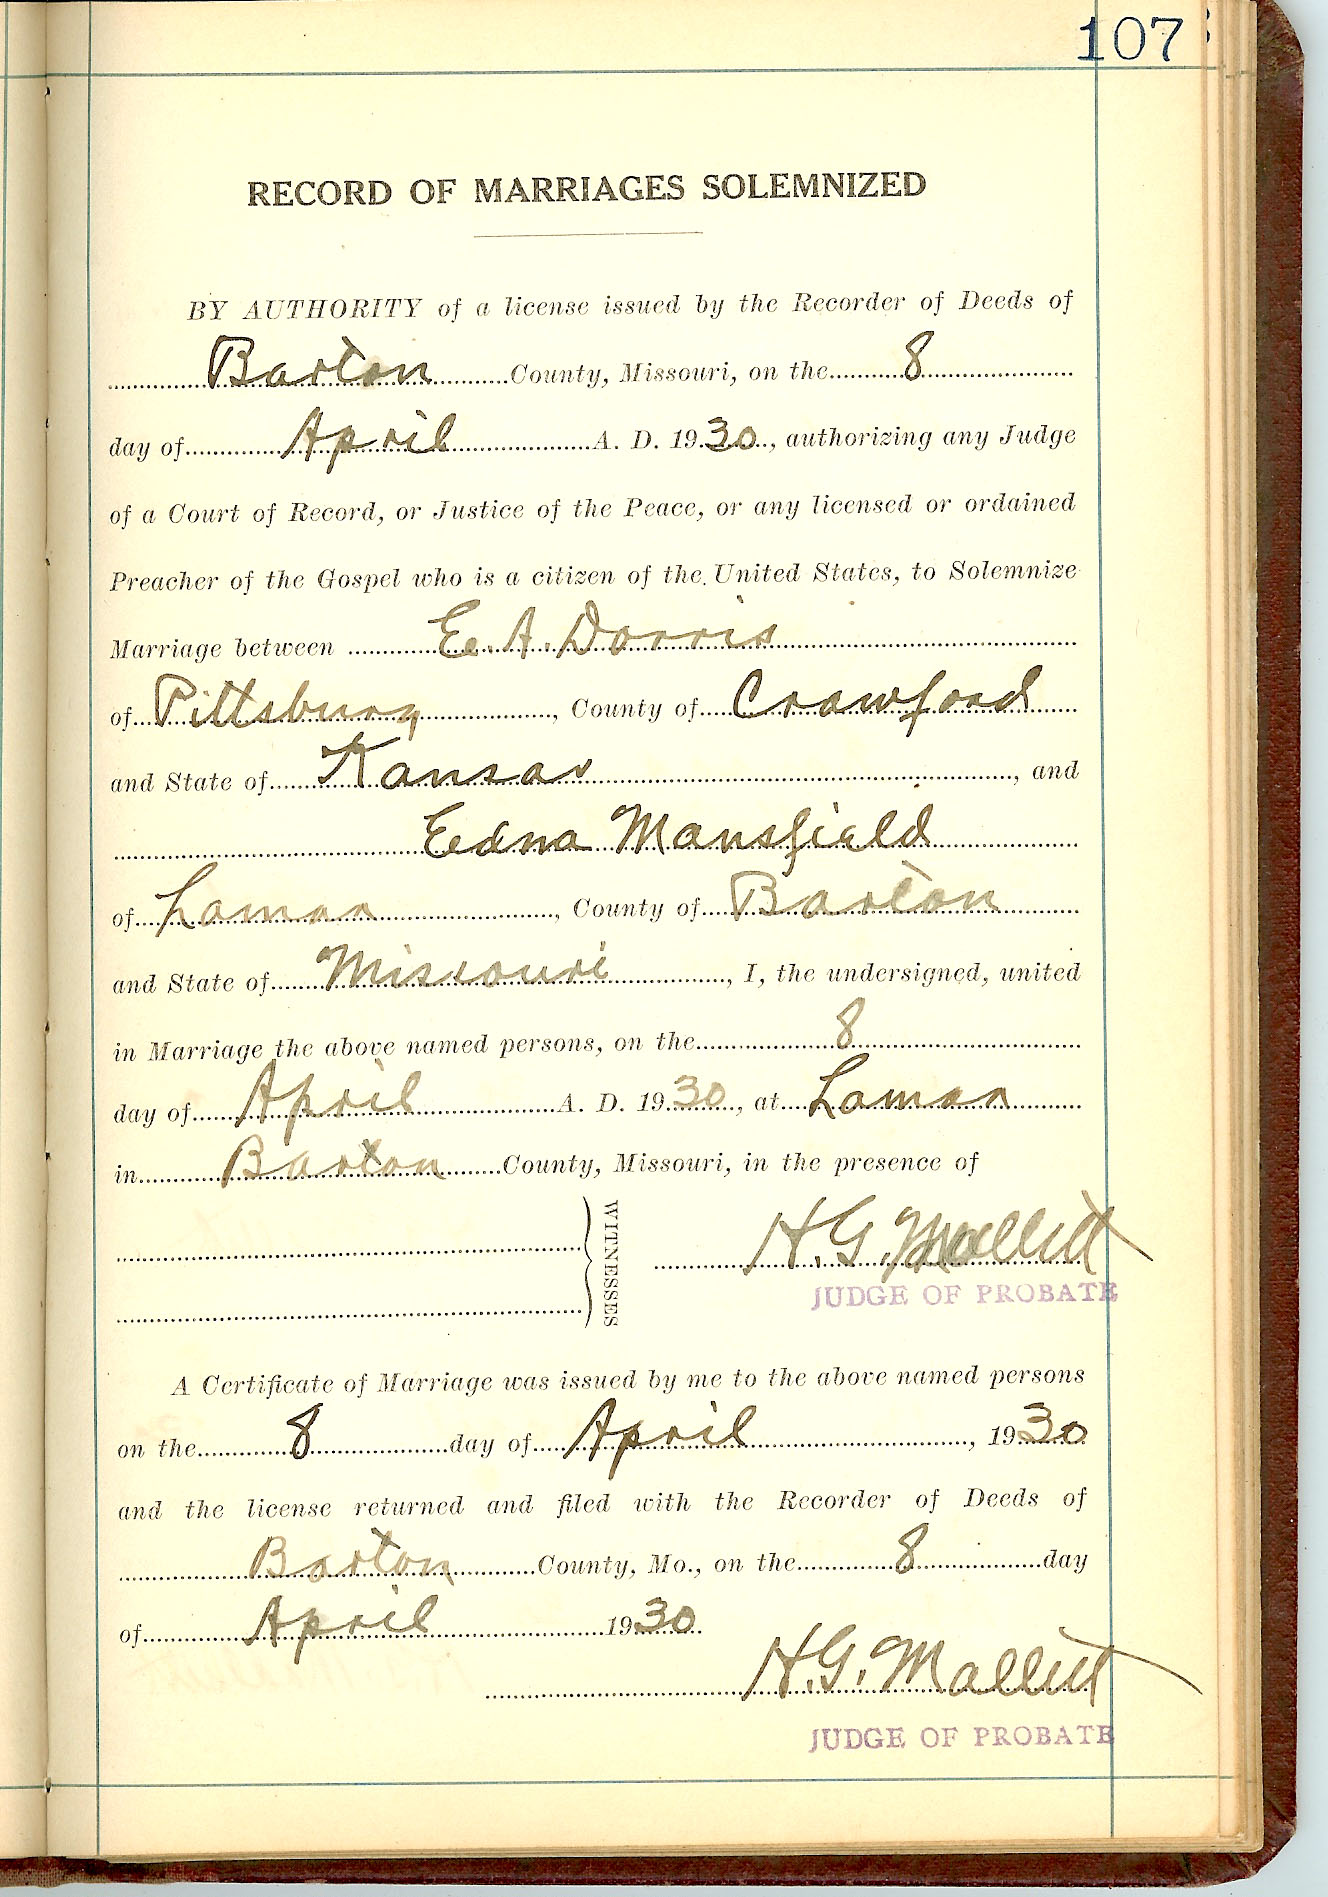 107
RECORD OF MARRIAGES SOLEMNIZED
BY AUTHORITY of a license issued by the Recorder of Deeds of
Barton County, Missouri, on the 8
day of April A. D. 1930, authorizing any Judge
of a Court of Record, or Justice of the Peace, or any licensed or ordained
Preacher of the Gospel who is a citizen of the United States, to Solemnize
Marriage between E. A. Dorris
of Pittsburg, County of Crawford
and State of Kansas, and
Edna Mansfield
of Lamar, County of Barton
and State of Missouri, I, the undersigned, united
in Marriage the above named persons, on the 8
day of April A. D. 1930, at Lamar
in Barton County, Missouri, in the presence of
WITNESSES
H. G. Mallett
JUDGE OF PROBATE
A Certificate of Marriage was issued by me to the above named persons
on the 8 day of April, 1930
and the license returned and filed with the Recorder of Deeds of
Barton County, Mo., on the 8 day
of April 1930.
H. G. Mallett
JUDGE OF PROBATE